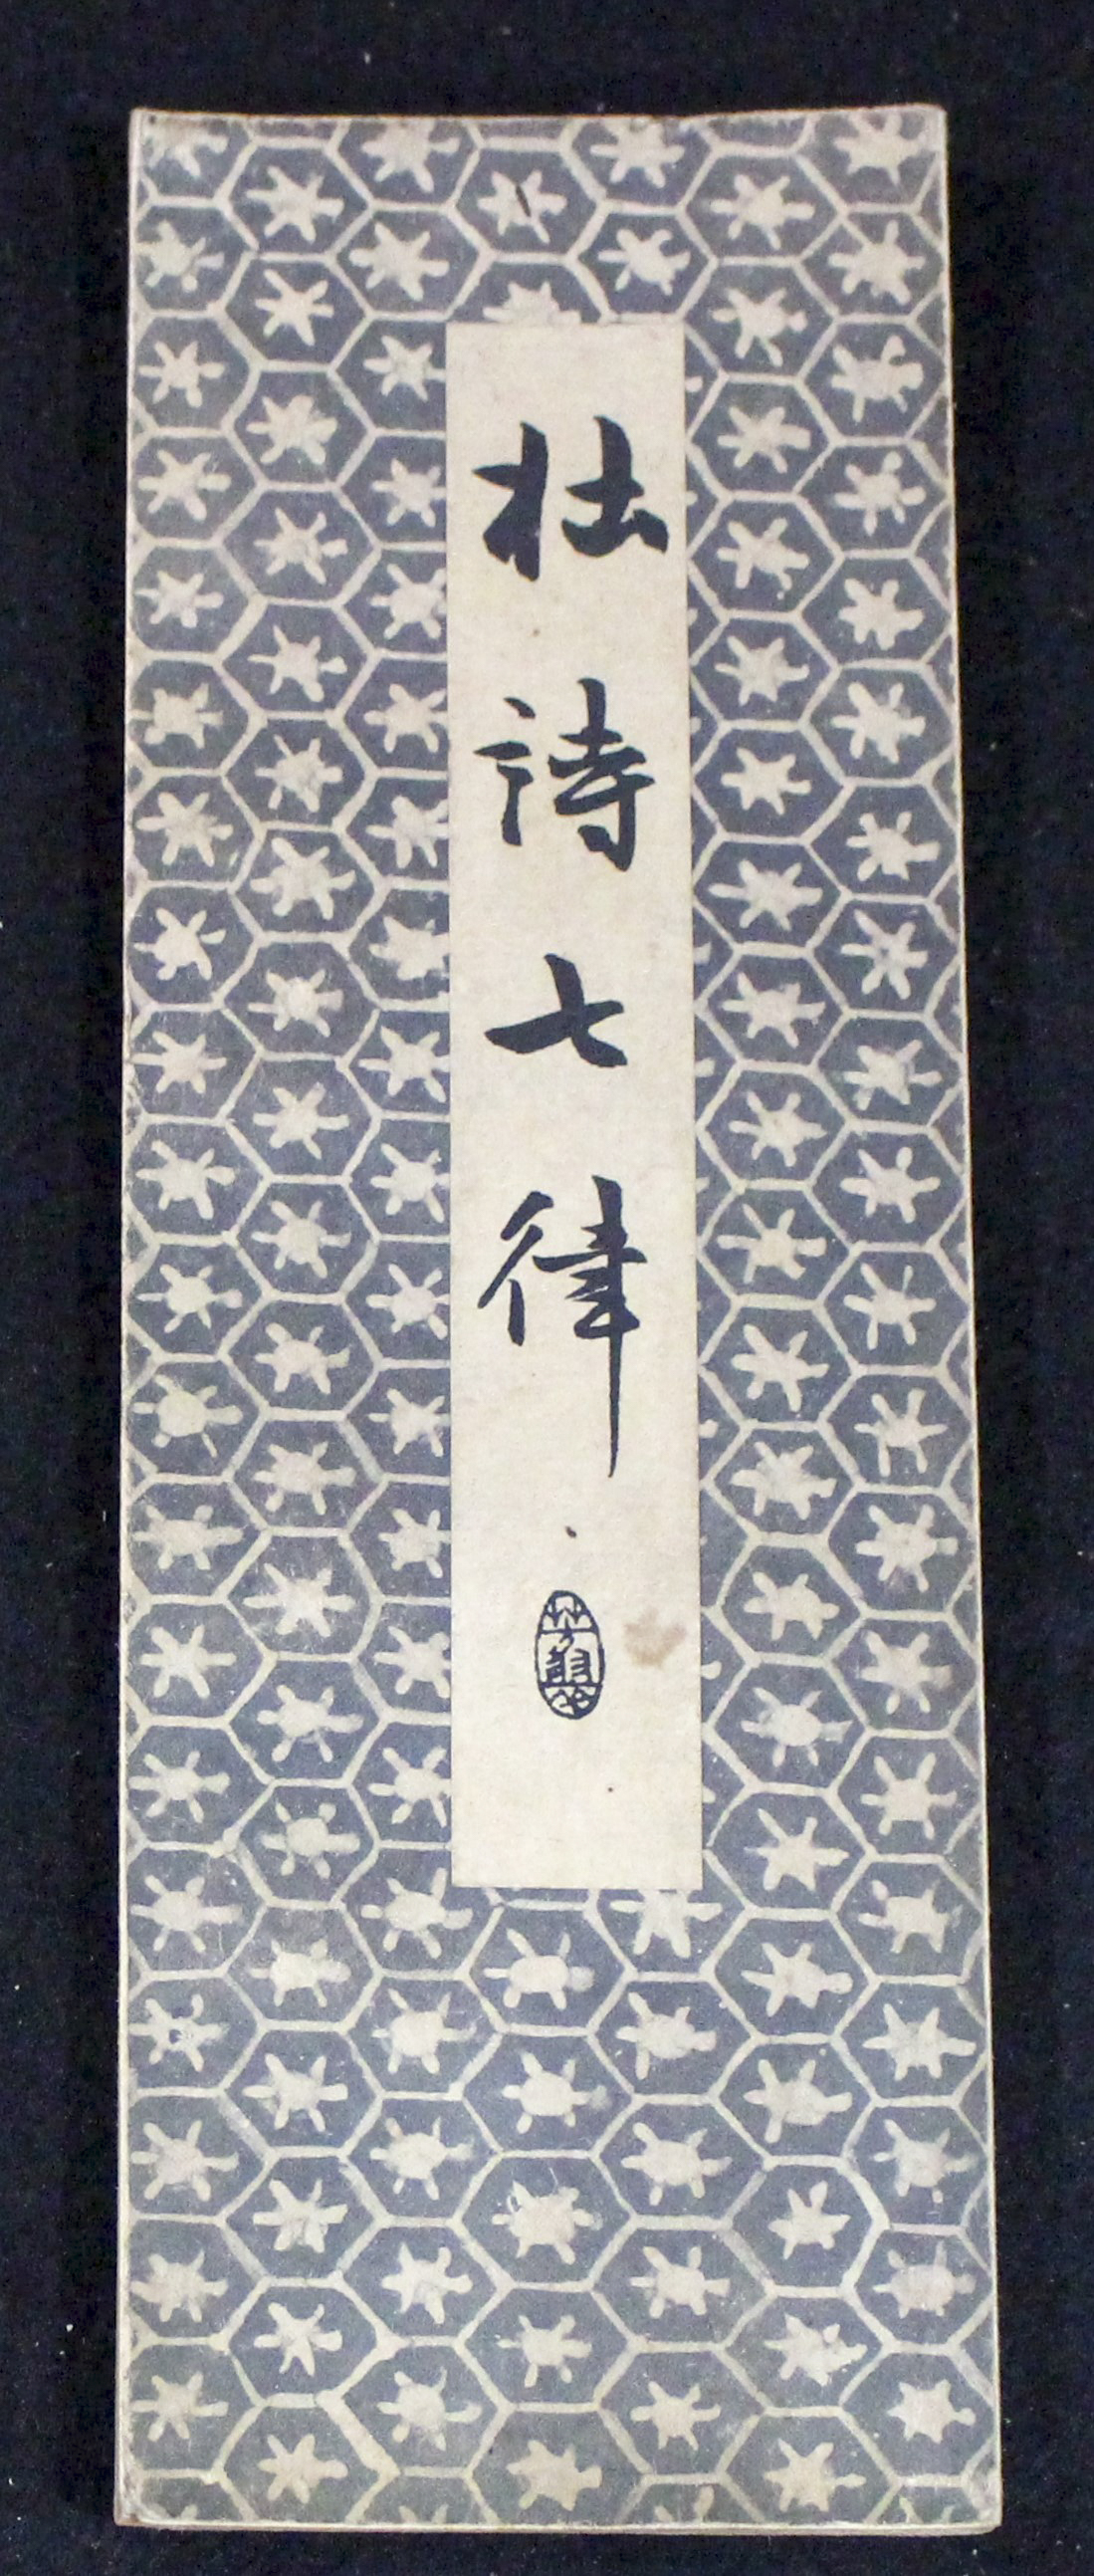 杜詩七律